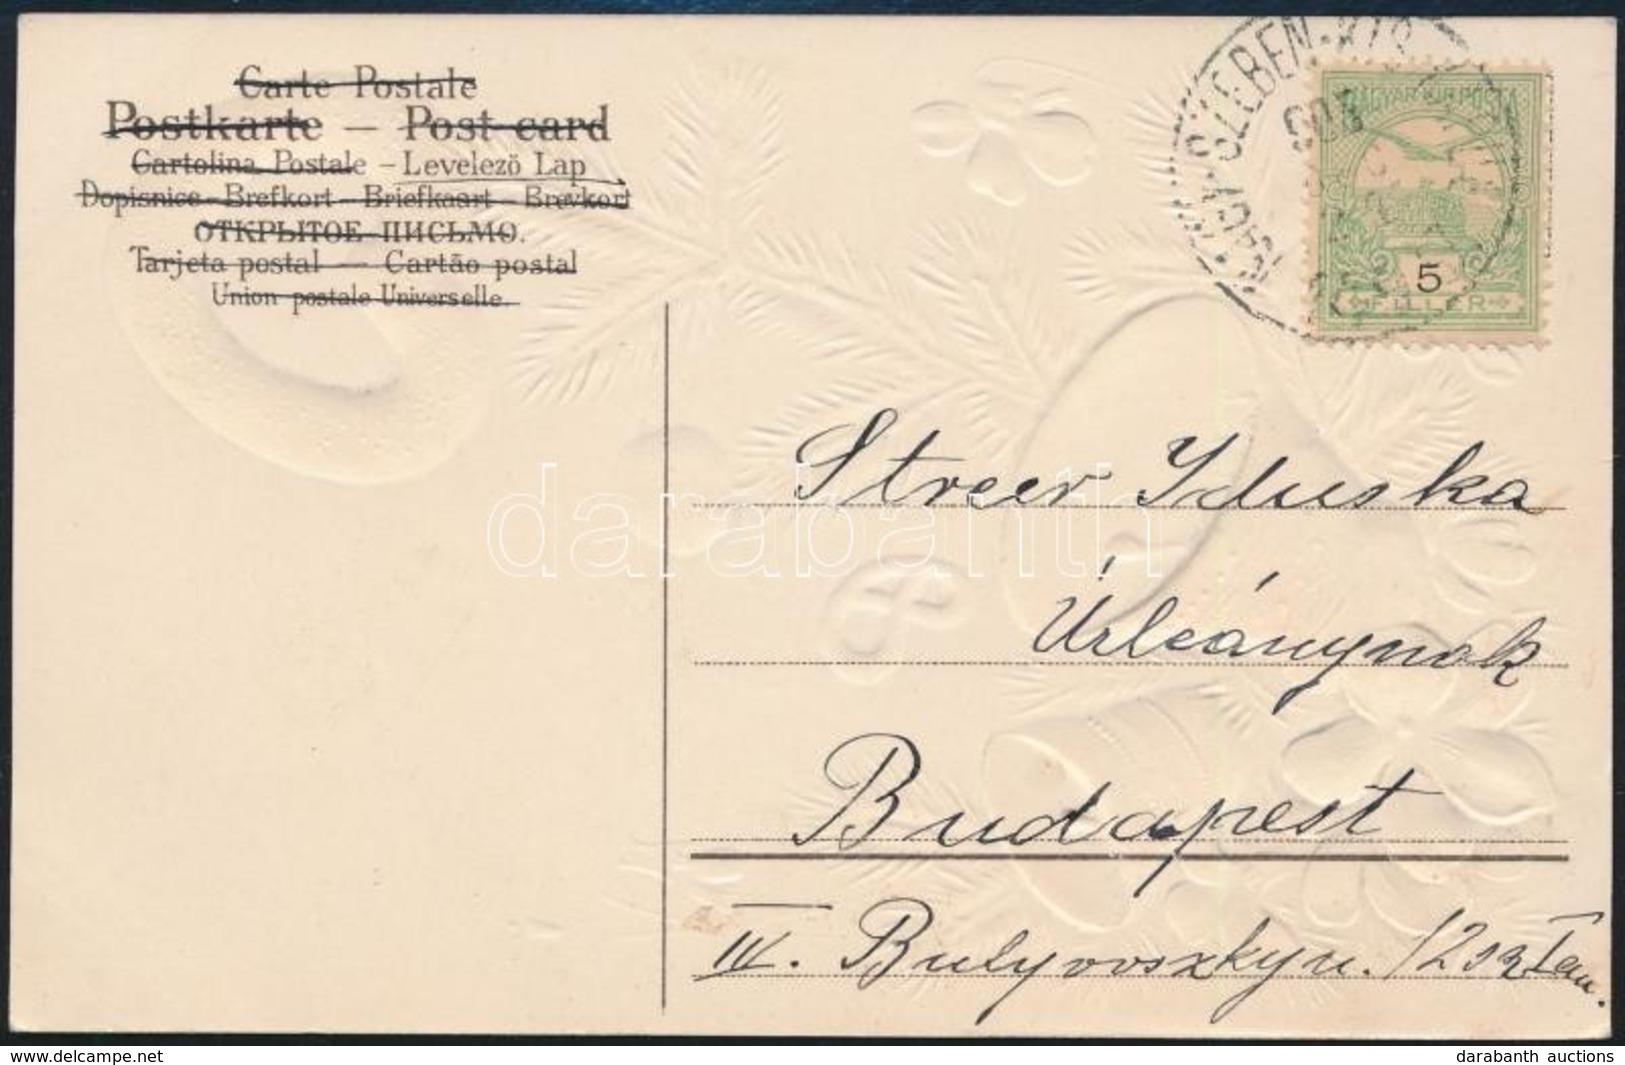 Carte Postale
Postkarte — Post-card
Cartolina Postale – Levelező Lap
Dopisnice – Brefkort – Briefkaart – Brevkort
ОТКРЫТОЕ ПИСЬМО.
Tarjeta postal — Cartão postal
Union postale Universelle.
MAGYAR KIR. POSTA
5
FILLÉR
Streer Iduska
Úrleánynak
Budapest
IV. Bulyovszky u.
darabanth
darabanth auctions